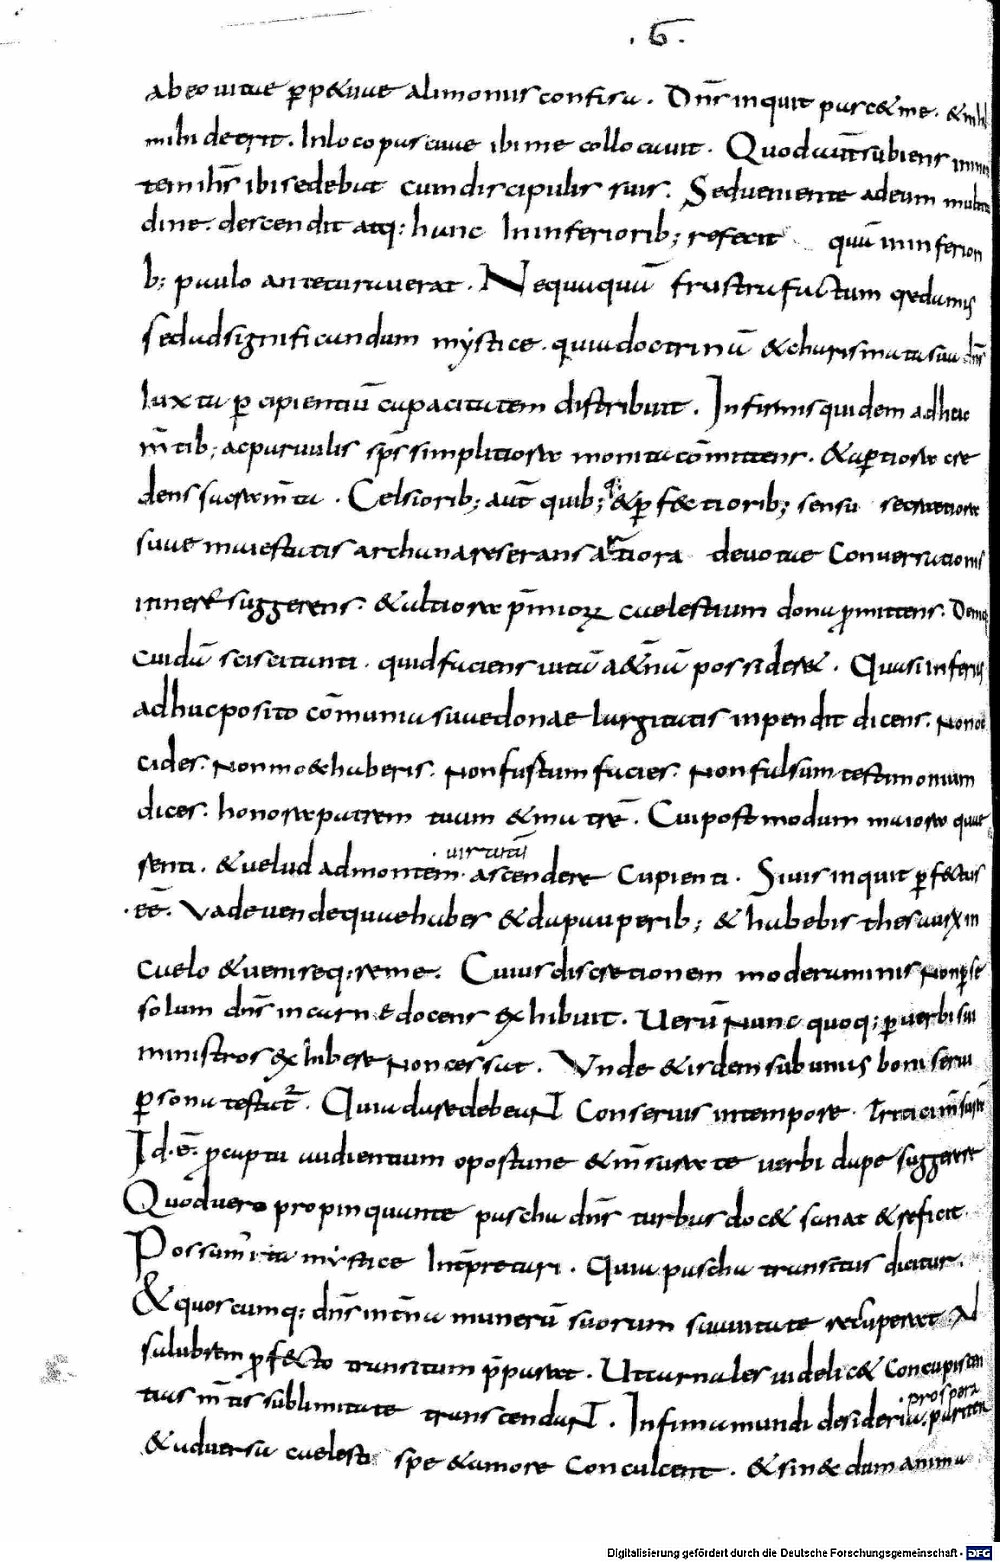 .6.
ab eo uitae ꝑpetuae alimoniis confisa. Dn̄s inquit pascet me. & nihil
mihi deerit. In loco pascuae ibi me collocauit. Quod aut̄ subiens in mon
tem ih̄s ibi sedebat cum discipulis suis. Sed ueniente ad eum multitu
dine. descendit atq: hanc In inferiorib; refecit quā in inferiori
b; paulo ante curauerat. Nequaquā frustra factum credamus
sed ad significandam mystice. quia doctrinā & charismata sua dn̄s
Iuxta ꝑcipientiū capacitatem distribuit. Infirmis quidem adhuc
m̄tib; ac paruulis sp̄s simpliciore monita com̄ittens. & aꝑtiore cre
dens sacrem̄ta. Celsiorib; aut̄ quib; & ꝑfectiorib; sensu secretiore
suae maiestatis archana reserans artiora deuotae Conuersationis
itinera suggerens. & altiore p̄miorꝝ caelestium dona ꝓmittens. Deniq
cuidā sciscitanti. quid faciens uitā aet̄nā possideret. Quasi inferius
adhuc posito com̄unia suae donae largitatis inpendit dicens. Non oc
cides. Non moechaberis. Non furtum facies. Non falsum testimonium
dices. honore patrem tuum & matrē. Cui postmodum maiore quae
renti. & uelud ad montem uirtutū ascendere Cupienti. Si uis inquit ꝑfectus
eē. Vade uende quae habes & da pauperib; & habebis thesaurꝝ in
caelo & ueni seq: reme. Cuius discretionem moderaminis Non ꝑ se
solum dn̄s in carne docens exhibuit. Uerū Nunc quoq; ꝑ uerbi sui
ministros exhibere Non cessat. Vnde & isdem sub unius boni serui
ꝑsona testat᷑. Quia dare debeant Conseruis in tempore. Tritici m̄sura
Id. ē. ꝓ captu audientium oportune & m̄surate uerbi dape suggerere
Quod uero propinquante pascha dn̄s turbas docet sanat & reficit.
Possum ita mystice Int̄pretari. Quia pascha transitus dicitur.
& quoscumq: dn̄s int̄na munerū suorum suauitate recuperet Ad
salubrem ꝓfecto transitum p̄parat. Ut carnales uidelicet Concupiscen
tias m̄tis sublimitate transcendant. Infima mundi desideria. pariter prospera
& aduersa caelesti spe & amore Conculcent. & sin& dum anima
Digitalisierung gefördert durch die Deutsche Forschungsgemeinschaft - DFG